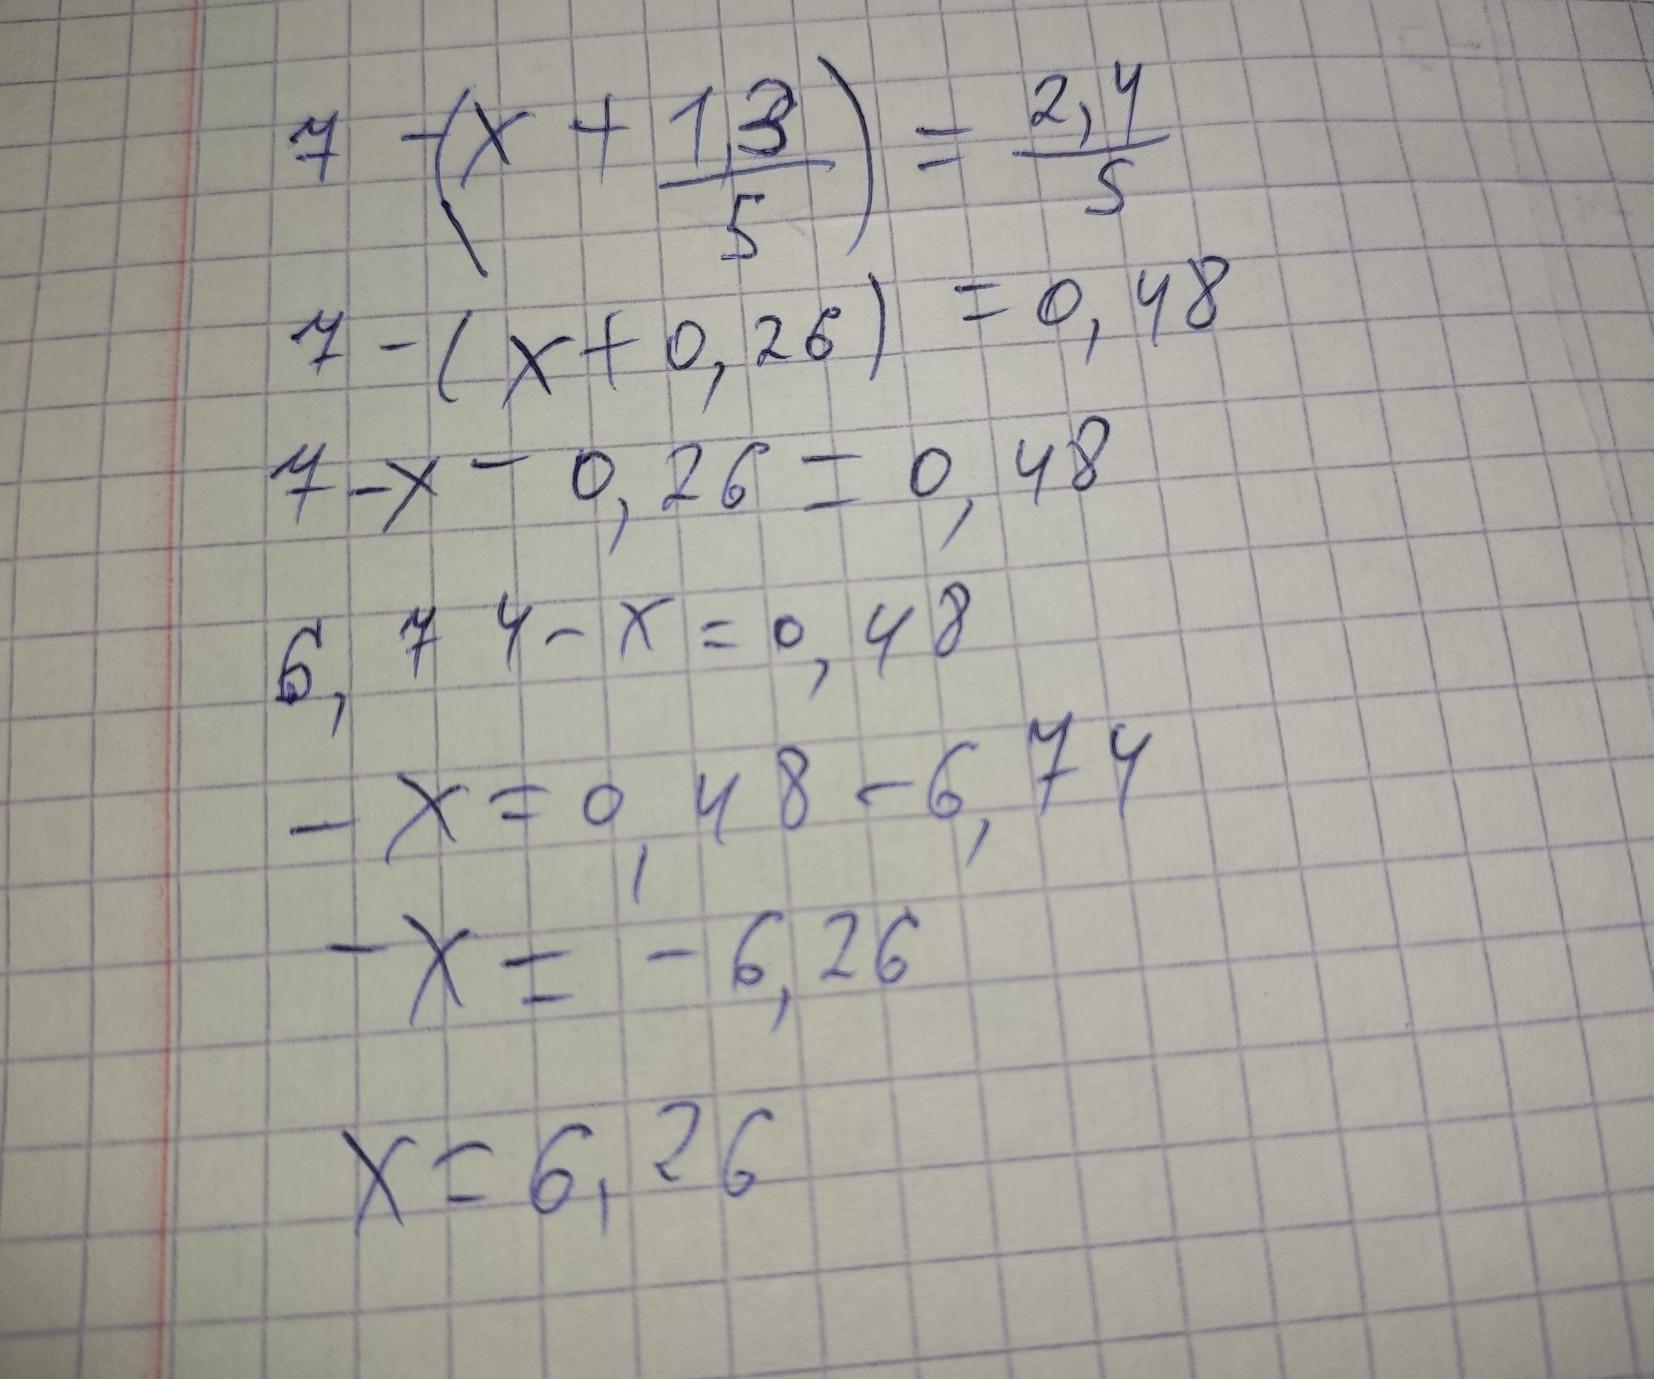 7 - (x + 1,3/5) = 2,4/5
7 - (x + 0,26) = 0,48
7 - x - 0,26 = 0,48
6,74 - x = 0,48
- x = 0,48 - 6,74
- x = - 6,26
x = 6,26